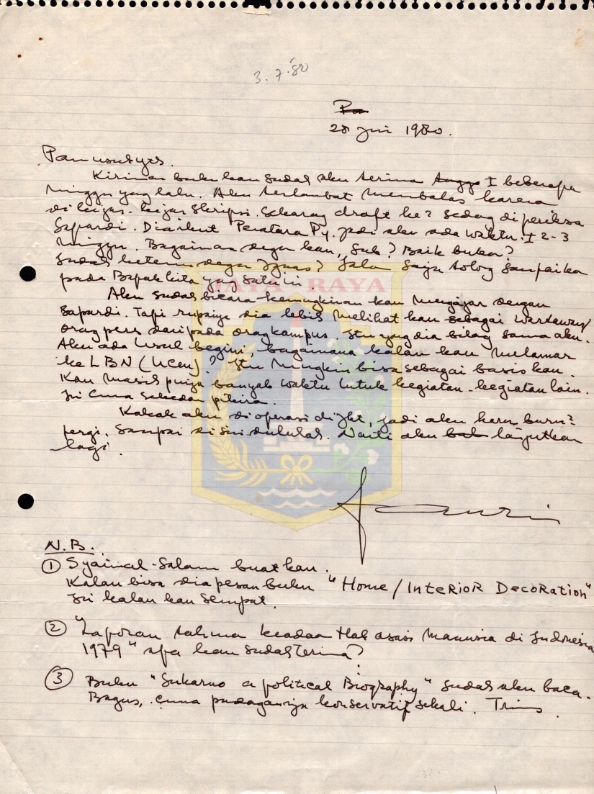 3.7.'80
28 Juni 1980.
Kiriman buku kau sudah aku terima I beberapa
minggu yang lalu. Aku terlambat membalas karena
skripsi. Sekarang draft ke2 sedang diperiksa
Sapardi. jadi aku ada waktu ± 2-3
minggu. Bagaimana dengan kau, Baik bukan?
Sudah ketemu dengan Salam saya tolong sampaikan
pada Bapak kita yang satu ini
JAYA RAYA
Aku sudah bicara kemungkinan kau mengajar dengan
Sapardi. Tapi rupanya dia lebih melihat kau sebagai wartawan/
orang pers daripada orang kampus. Itu yang dia bilang sama aku.
Aku ada usul begini, bagaimana kalau kau melamar
ke LBN (LEKNAS). Itu mungkin bisa sebagai basis kau.
Kau masih punya banyak waktu untuk kegiatan-kegiatan lain.
Ini cuma sekedar pikiran.
Kakak aku dioperasi jadi aku harus buru2
pergi. Sampai di sini dululah. Nanti aku lanjutkan
lagi.
N.B.:
① Salam buat kau.
Kalau bisa dia pesan buku "Home/Interior Decoration"
Ini kalau kau sempat.
② "Laporan tahunan keadaan Hak asasi Manusia di Indonesia
1979" apa kau sudah terima?
③ Buku "Sukarno a political Biography" sudah aku baca.
Bagus, cuma pandangannya konservatif sekali. Trims